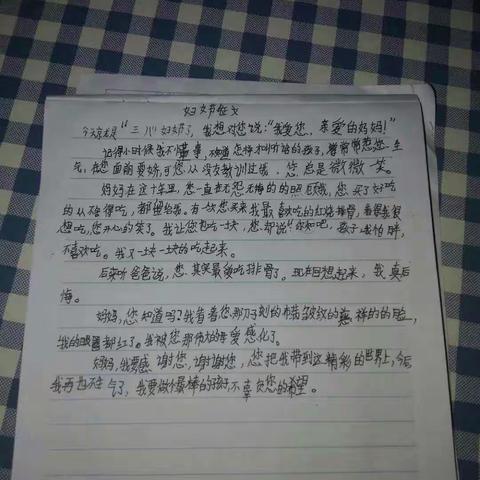 妇女节征文
今天是"三八"妇女节了，我想对您说："我爱您，亲爱的妈妈！"
记得小时候我不懂事，不知道怎样才叫好的孩子，常常惹您生
气，在您面前耍娇，可您从没教训过我，您总是微微一笑。
妈妈在这十年里，您一直无怨无悔的照顾我，您买了好吃
的从不舍得吃，都留给我。有一次您买来我最喜欢吃的红烧排骨，看得我很
想吃，您开心的笑了。我让您也吃一块，您却说"你吃吧，孩子我怕胖，
不喜欢吃。我又一块一块的吃起来。
后来听爸爸说，您其实最爱吃排骨了。现在回想起来，我真后
悔。
妈妈，您知道吗？我看着您那刀刻的布满皱纹的慈祥的脸，
我的眼圈都红了。我被您那伟大的母爱感化了。
妈妈，我要感谢您，谢谢您，您把我带到这精彩的世界上，今后
我再也不生气了，我要做个最棒的孩子，不辜负您的希望。